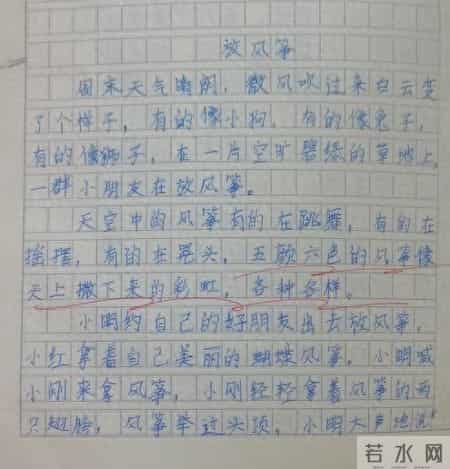 放风筝
周末天气晴朗，微风吹过来白云变
了个样子，有的像小狗，有的像兔子，
有的像狮子，在一片空旷碧绿的草地上，
一群小朋友在放风筝。
天空中的风筝有的在跳舞，有的在
摇摆，有的在晃头，五颜六色的风筝像
天上撒下来的彩虹，各种各样。
小明约自己的好朋友出去放风筝，
小红拿着自己美丽的蝴蝶风筝。小明喊
小刚来拿风筝，小刚轻轻拿着风筝的两
只翅膀，风筝举过头顶，小明大声地说
若水网
yanruoshui.com